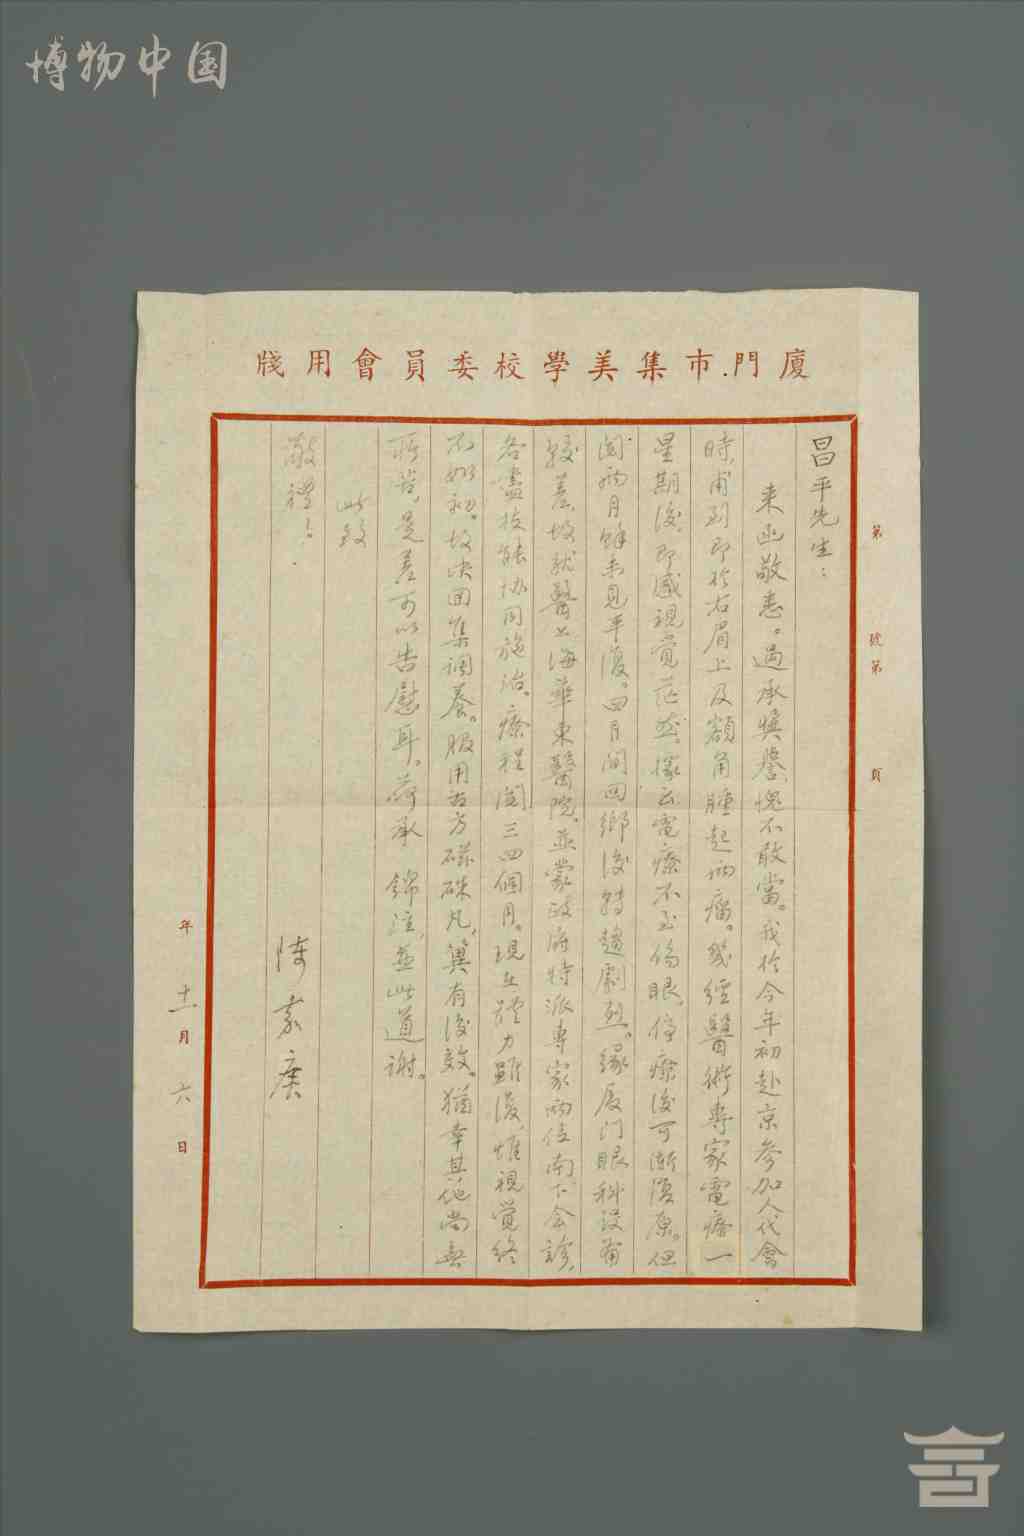 博物中国
廈門市集美學校委員會用牋
第 號第 頁
昌平先生：
来函敬悉。過承獎譽，愧不敢當。我於今年初赴京参加人代會
時，甫到即於右眉上及額角腫起兩瘤。幾經醫術專家電療一
星期後，即感視覺茫茫，據云電療不至傷眼，停療後可漸復原。但
閲兩月餘未見平復。四月间回鄉後轉趨劇烈。缘厦门眼科设备
較差，故就醫上海華東醫院，並蒙政府特派專家两位南下会診，
各盡技能协同施治。療程閲三四個月。現在體力雖復，惟視覺终
不如初。故决回集调養。服用古方磁硃丸，冀有後效。猶幸其他尚無
所苦，是差可以告慰耳。荷承錦注，並此道谢。
此致
敬禮！
陈嘉庚
年十一月六日